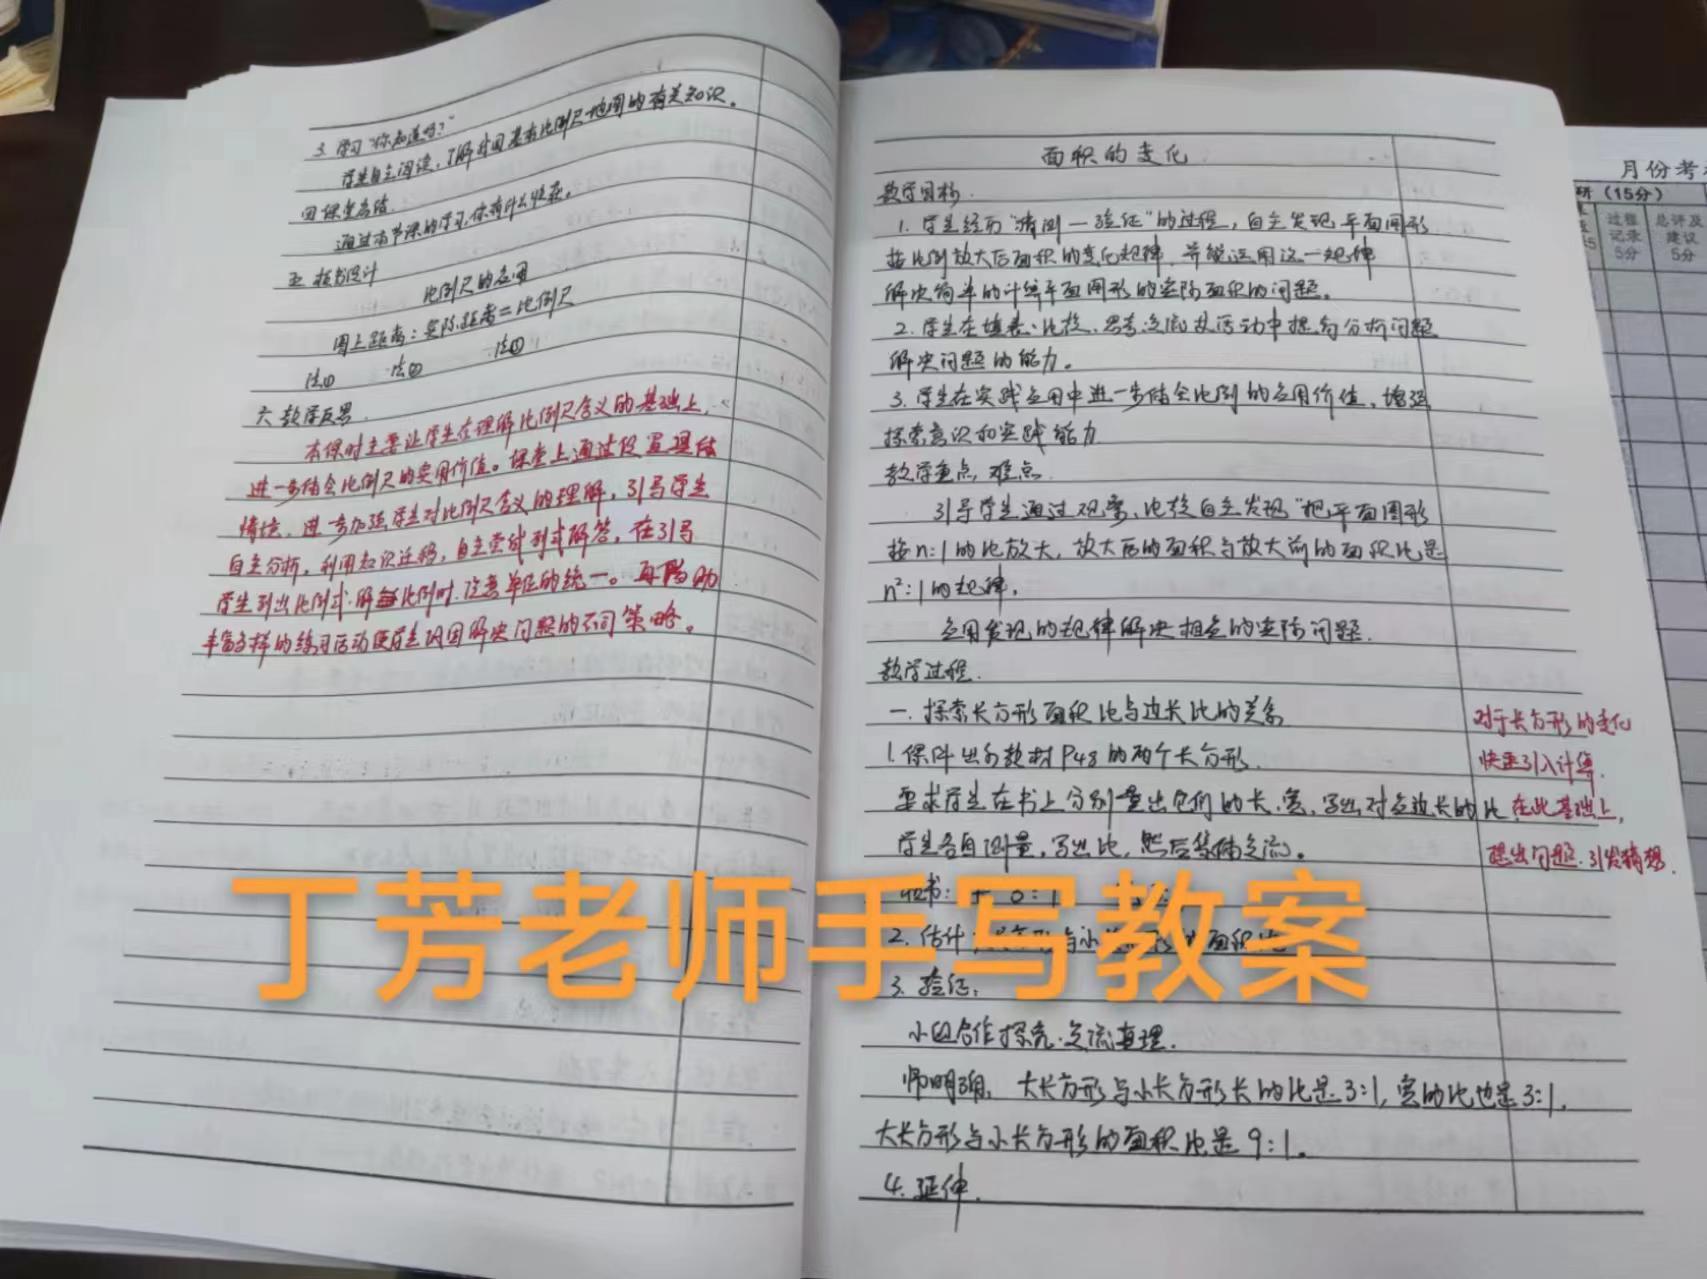 3. 学习“你知道吗?”
学生自主阅读，了解中国基本比例尺地图的有关知识。
四 课堂总结
通过本节课的学习，你有什么收获。
五 板书设计
比例尺的应用
图上距离：实际距离=比例尺
法① 法② 法③
六 教学反思
本课时主要让学生在理解比例尺含义的基础上，
进一步体会比例尺的实用价值。课堂上通过设置具体
情境，进一步加强学生对比例尺含义的理解，引导学生
自主分析，利用知识迁移，自主尝试列式解答，在引导
学生列出比例式.解比例时.注意单位的统一。再借助
丰富多样的练习活动使学生巩固解决问题的不同策略。
面积的变化
教学目标.
1. 学生经历“猜测—验证”的过程，自主发现平面图形
按比例放大后面积的变化规律，并能运用这一规律
解决简单的计算平面图形的实际面积的问题。
2. 学生在填表、比较、思考交流等活动中提高分析问题
解决问题的能力。
3. 学生在实践应用中进一步体会比例的应用价值，增强
探索意识和实践能力
教学重点 难点.
引导学生通过观察、比较自主发现“把平面图形
按n:1的比放大，放大后的面积与放大前的面积比是
n²:1的规律.
应用发现的规律解决相应的实际问题.
教学过程.
一. 探索长方形面积比与边长比的关系
1. 课件出示教材P48的两个长方形.
要求学生在书上分别量出它们的长.宽，写出对应边长的比
学生各自测量，写出比，然后集体交流。
对于长方形的变化
快速引入计算.
在此基础上，
提出问题.引发猜想.
2. 估计
3. 验证.
小组合作探究.交流直理.
师明确，大长方形与小长方形长的比是3:1,宽的比也是3:1.
大长方形与小长方形的面积比是9:1。
4. 延伸.
丁芳老师手写教案
月份考
研（15分）
过程
记录
5分
总评及
建议
5分